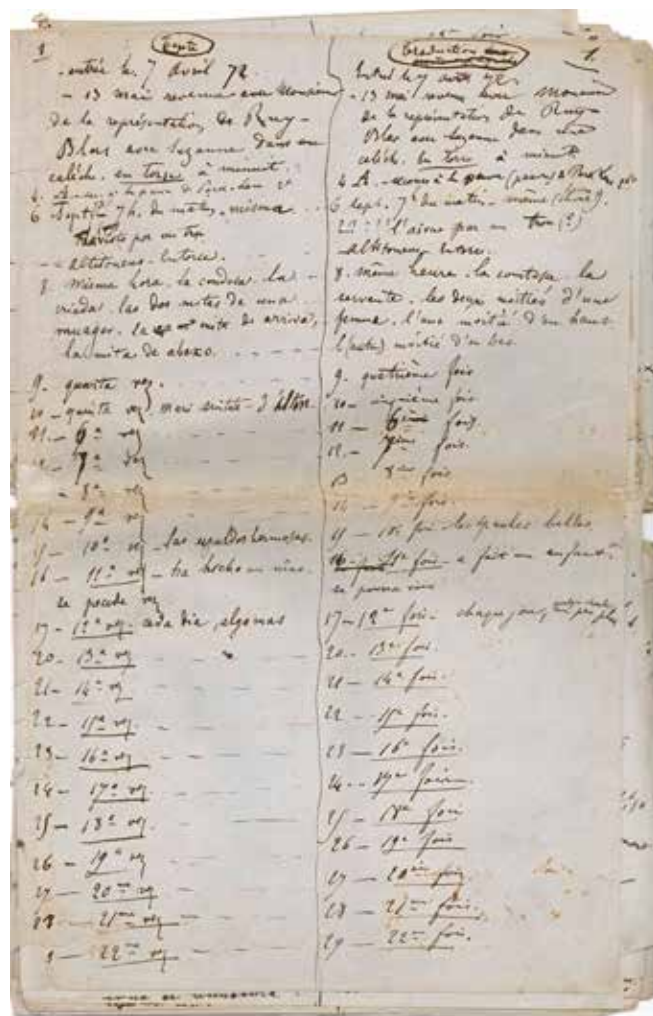 1
Texte
- entrée le 7 Avril 72.
- 13 mai revenue avec Monsieur
de la représentation de Ruy-
Blas avec Suzanne dans une
calèche. en torse à minuit.
6 Sept. 7h. du matin - misma
- altitoneus. Entorse.
8. misma hora. la condesa. la
criada. las dos mites de una
muager. la mite de arriva,
la mita de abaxo.
9. quarta vez.
10 - quinta vez
11. - 6ª vez
12 - 7ª vez
- 8ª vez
14 - 9ª vez
15 - 10ª vez - las espaldas hermosas.
16 - 11ª vez - ha hecho un niño.
se pocede vez
17 - 12ª vez. cada dia, algomas
20 - 13ª vez
21 - 14ª vez
22 - 15ª vez
23 - 16ª vez
24 - 17ª vez
25 - 18ª vez
26 - 19ª vez
27 - 20me vez
28 - 21me vez
22me vez
Traduction
1.
Entrée le 7 avril 72.
- 13 mai revenue avec Monsieur
de la représentation de Ruy-
Blas avec Suzanne dans une
calèche. en torse à minuit
6 sept. 7h du matin - même (chose).
l'aione par un trou (?)
- altitoneus. Entorse.
8. même heure. la comtesse. la
servante. les deux moitiés d'une
femme. l'une moitié d'en haut
l'(autre) moitié d'en bas.
9. quatrième fois
10 - cinquième fois
11 - 6ème fois
12. - 7ème fois.
13 8me fois
14 - 9me fois.
15 - 10e fois les épaules belles
16 - 11e fois - a fait un enfant.
17 - 12e fois - chaque jour,
20. - 13e fois.
21 - 14e fois.
22 - 15e fois.
23 - 16e fois.
24. - 17e fois
25 - 18e fois
26 - 19e fois
27 - 20ème fois
28 - 21me fois.
29 - 22me fois.